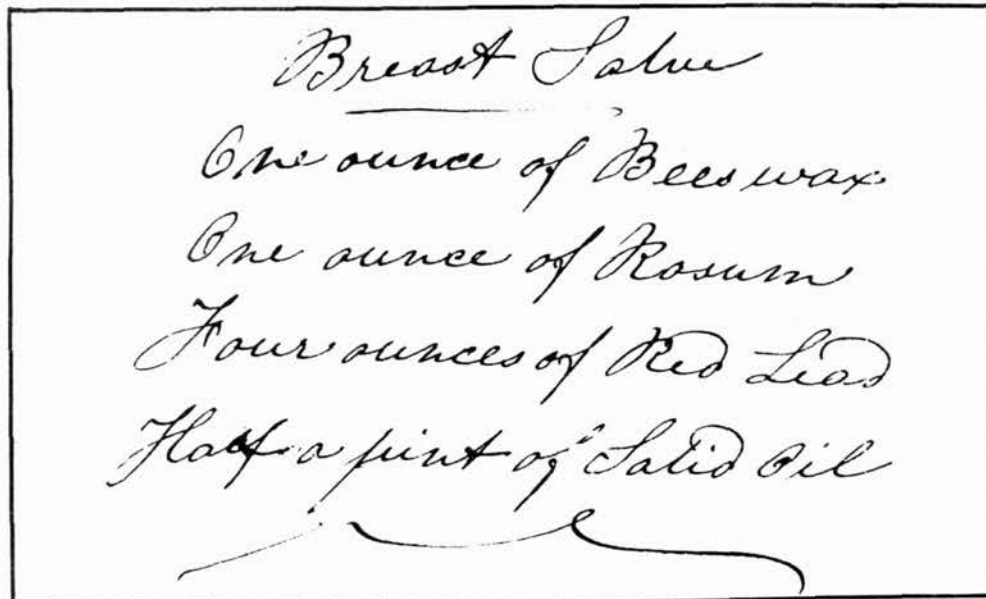 Breast Salve
One ounce of Beeswax
One ounce of Rosum
Four ounces of Red Lead
Half a pint of Salid Oil